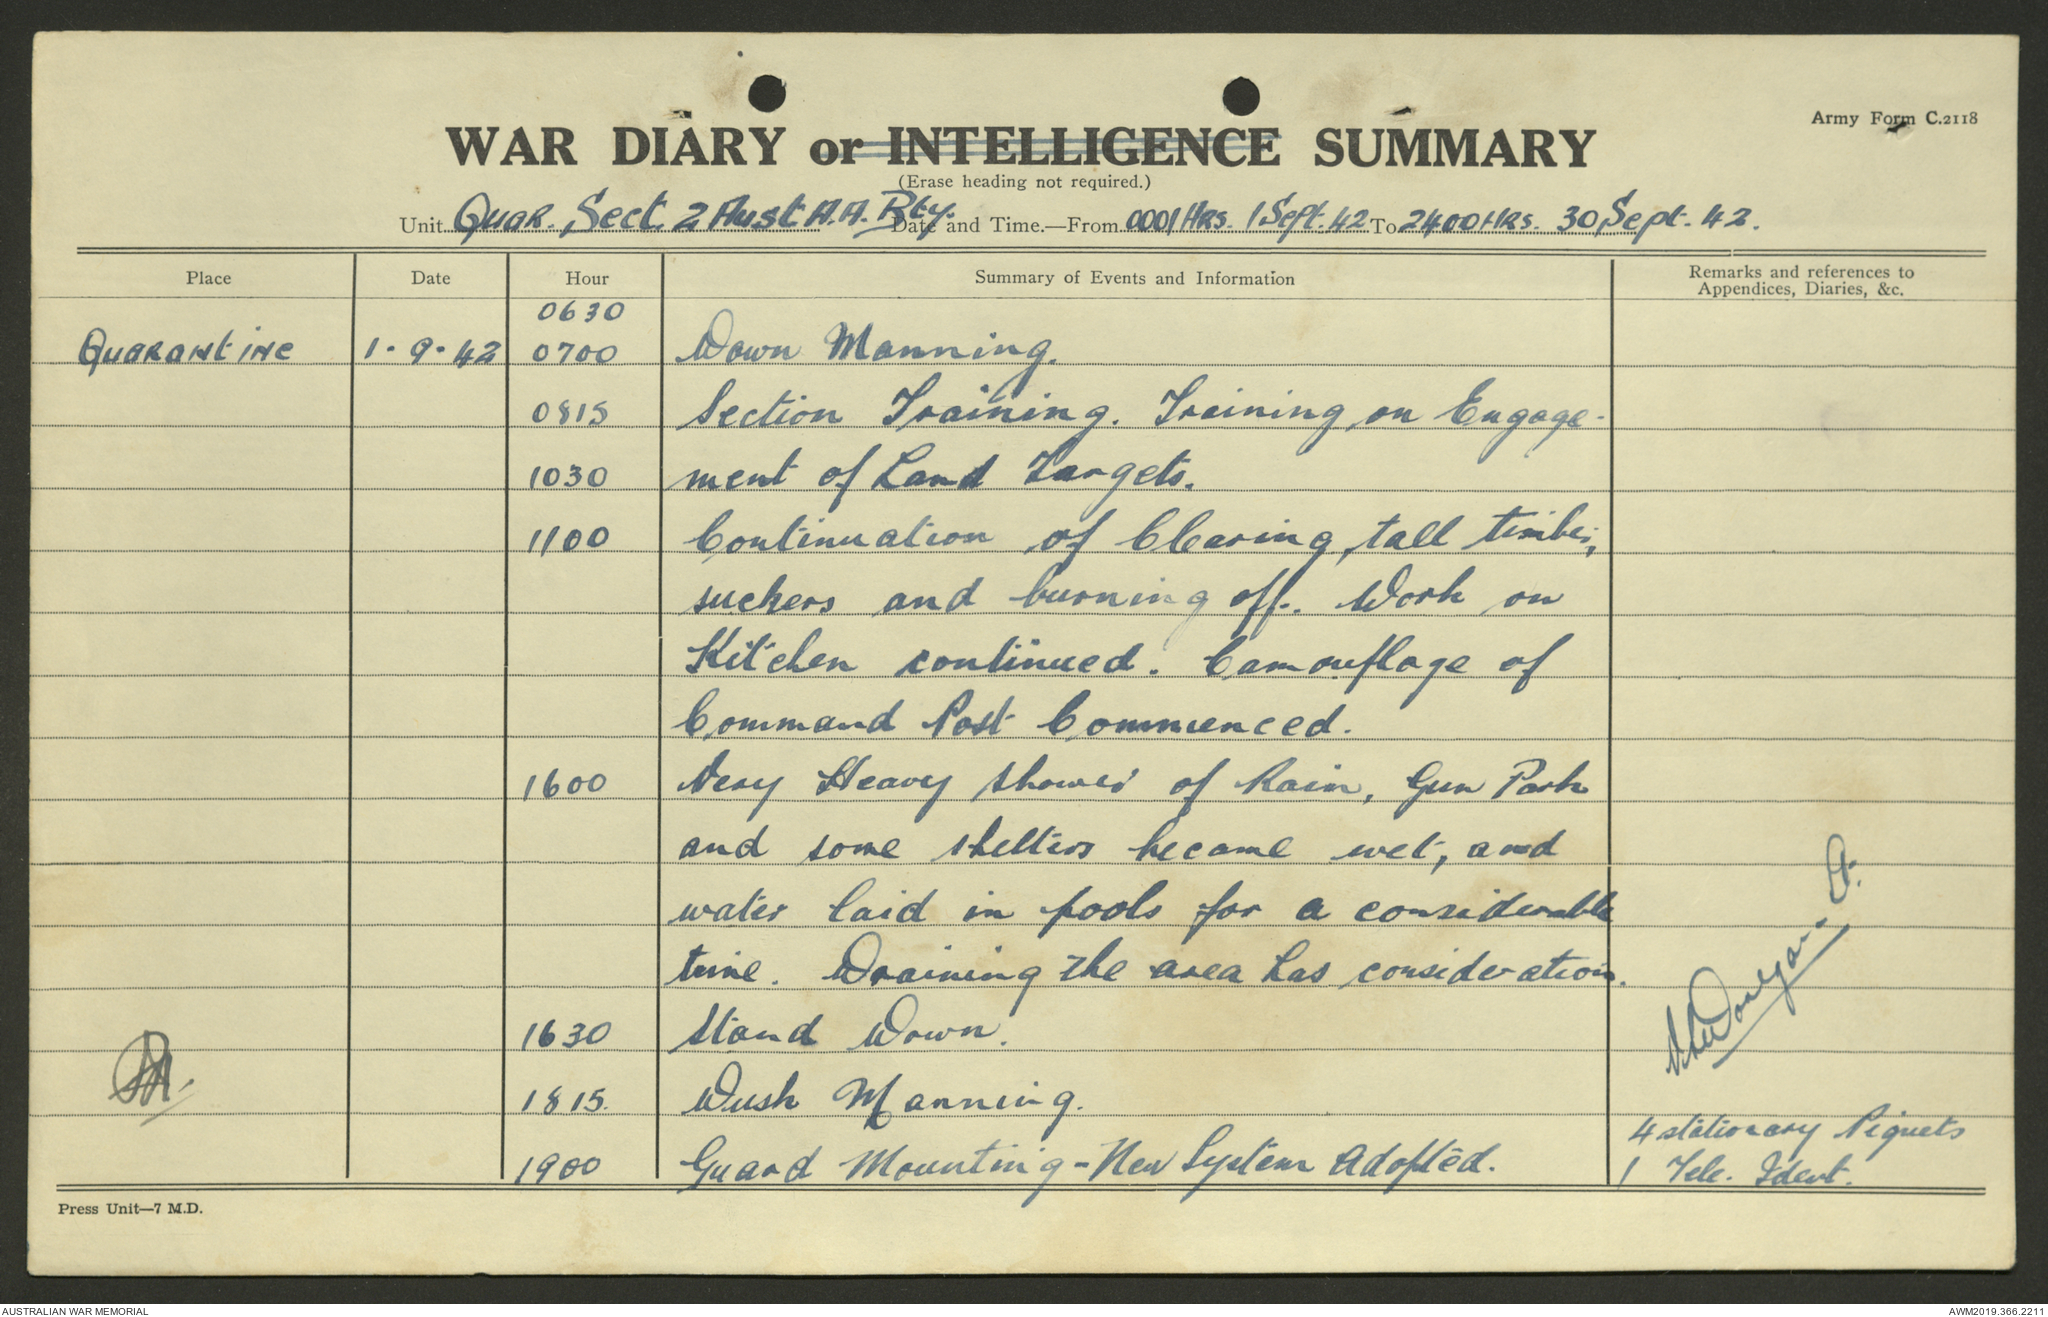 Army Form C.2118
WAR DIARY or INTELLIGENCE SUMMARY
(Erase heading not required.)
Unit Quar. Sect. 2 Aust A.A. Bty. Date and Time.—From 0001 Hrs. 1 Sept. 42 To 2400 Hrs. 30 Sept. 42.
Place Date Hour Summary of Events and Information Remarks and references to
Appendices, Diaries, &c.
0630
Quarantine 1.9.42 0700 Dawn Manning.
0815 Section Training. Training on Engage-
1030 ment of Land Targets.
1100 Continuation of Clearing, tall timber,
suckers and burning off. Work on
Kitchen continued. Camouflage of
Command Post Commenced.
1600 Very Heavy shower of Rain, Gun Park
and some shelters became wet, and
water laid in pools for a considerable
time. Draining the area has consideration.
1630 Stand Down.
1815. Dusk Manning.
1900 Guard Mounting - New System Adopted. 4 stationary Piquets
1 Tele. Ident.
Press Unit—7 M.D.
AUSTRALIAN WAR MEMORIAL AWM2019.366.2211